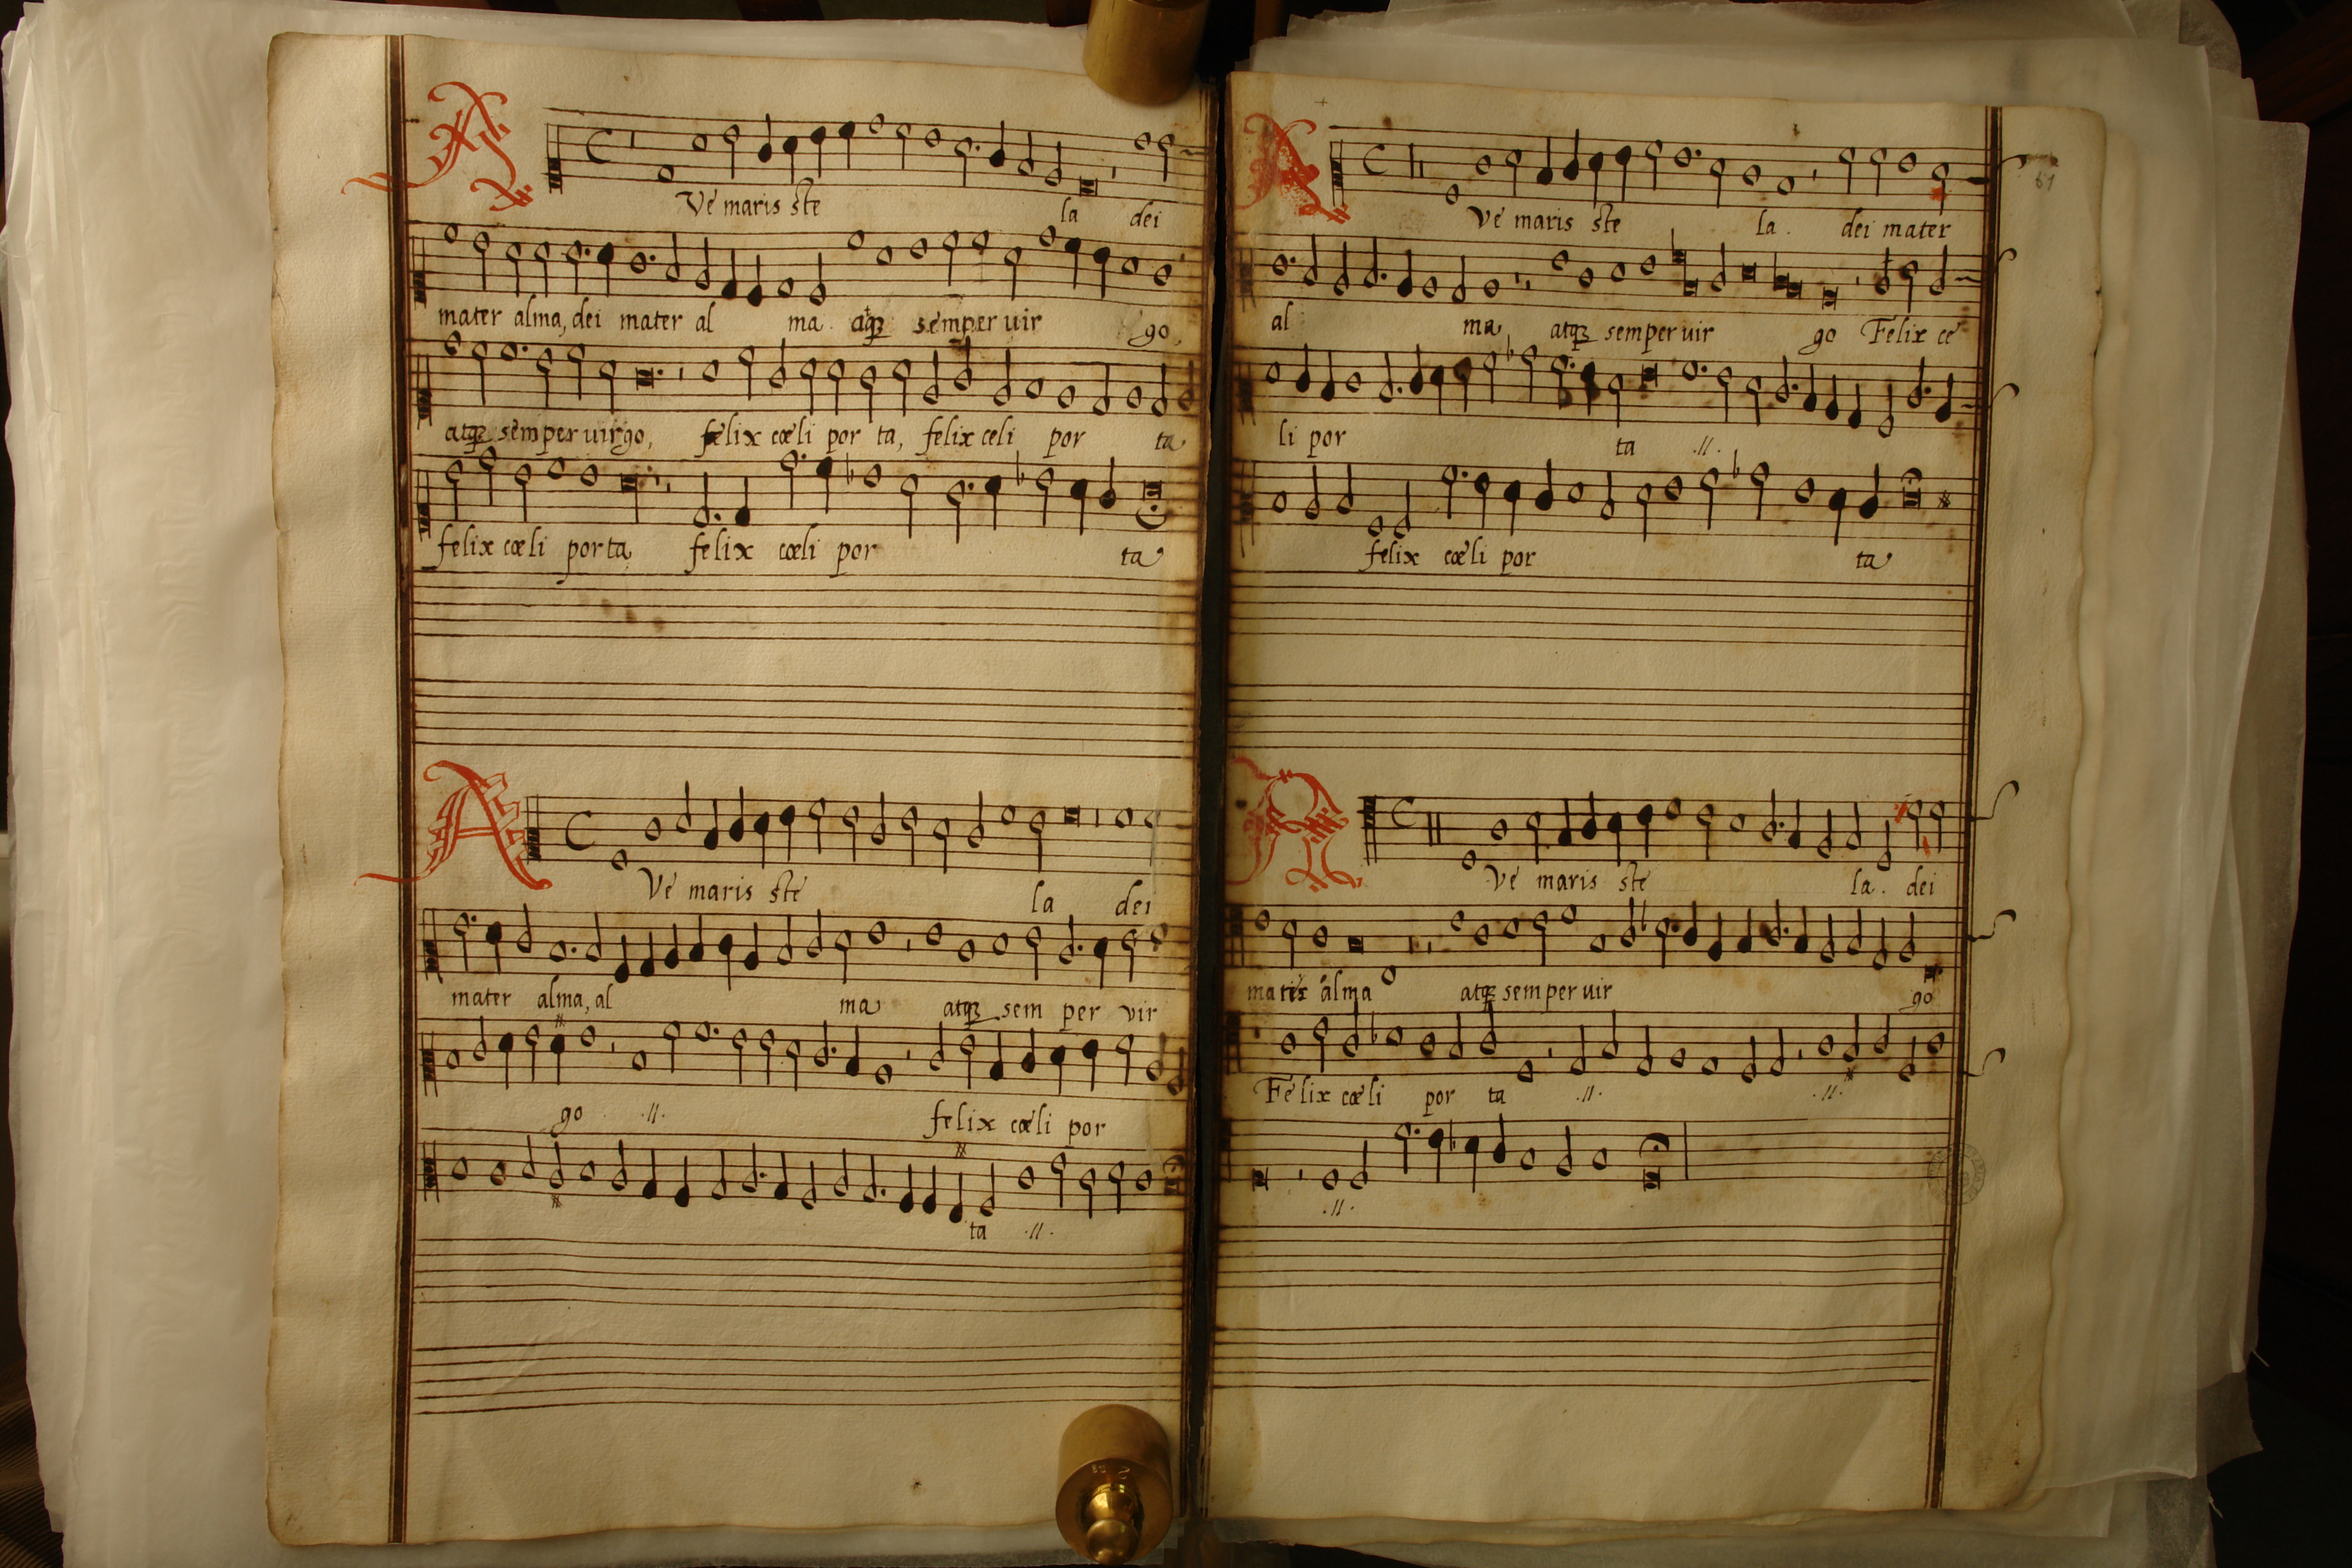 AVe maris ste la dei
mater alma, dei mater al ma atq̃ semper uir go,
atq̃ semper uirgo, felix cœli por ta, felix celi por ta
felix cœli porta felix cœli por ta
AVe maris ste la dei
mater alma, al ma atq̃ sem per vir
go .//. felix cœli por
ta .//.
61
AVe maris ste la. dei mater
al ma atq̃ semper uir go Felix ce
li por ta .//.
felix cœli por ta
AVe maris ste la. dei
alma atq̃ semper uir go
Felix cœli por ta .//. .//.
.//.